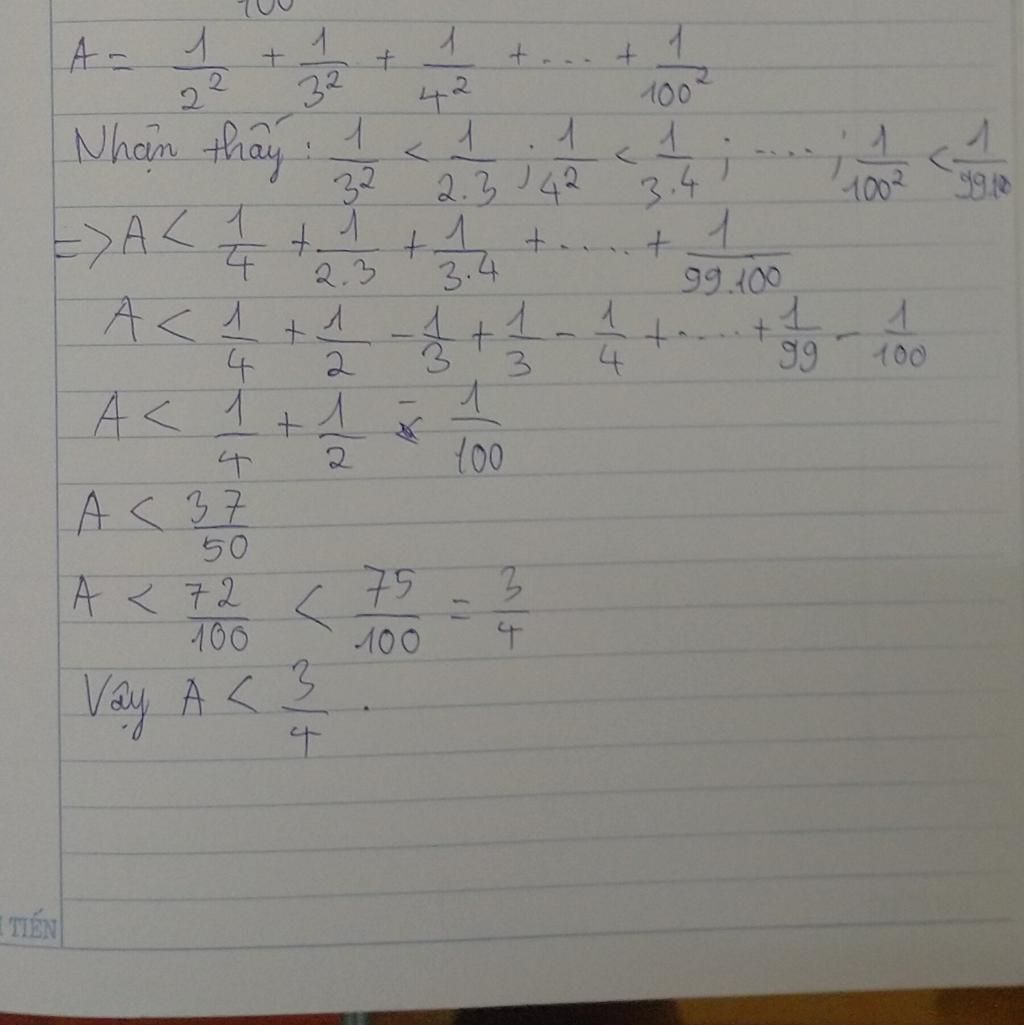 100
A = 1/2² + 1/3² + 1/4² + .... + 1/100²
Nhận thấy : 1/3² < 1/2.3 ; 1/4² < 1/3.4 ; .... ; 1/100² < 1/99.100
=> A < 1/4 + 1/2.3 + 1/3.4 + ..... + 1/99.100
A < 1/4 + 1/2 - 1/3 + 1/3 - 1/4 + ..... + 1/99 - 1/100
A < 1/4 + 1/2 - 1/100
A < 37/50
A < 72/100 < 75/100 = 3/4
Vậy A < 3/4 .
TIẾN